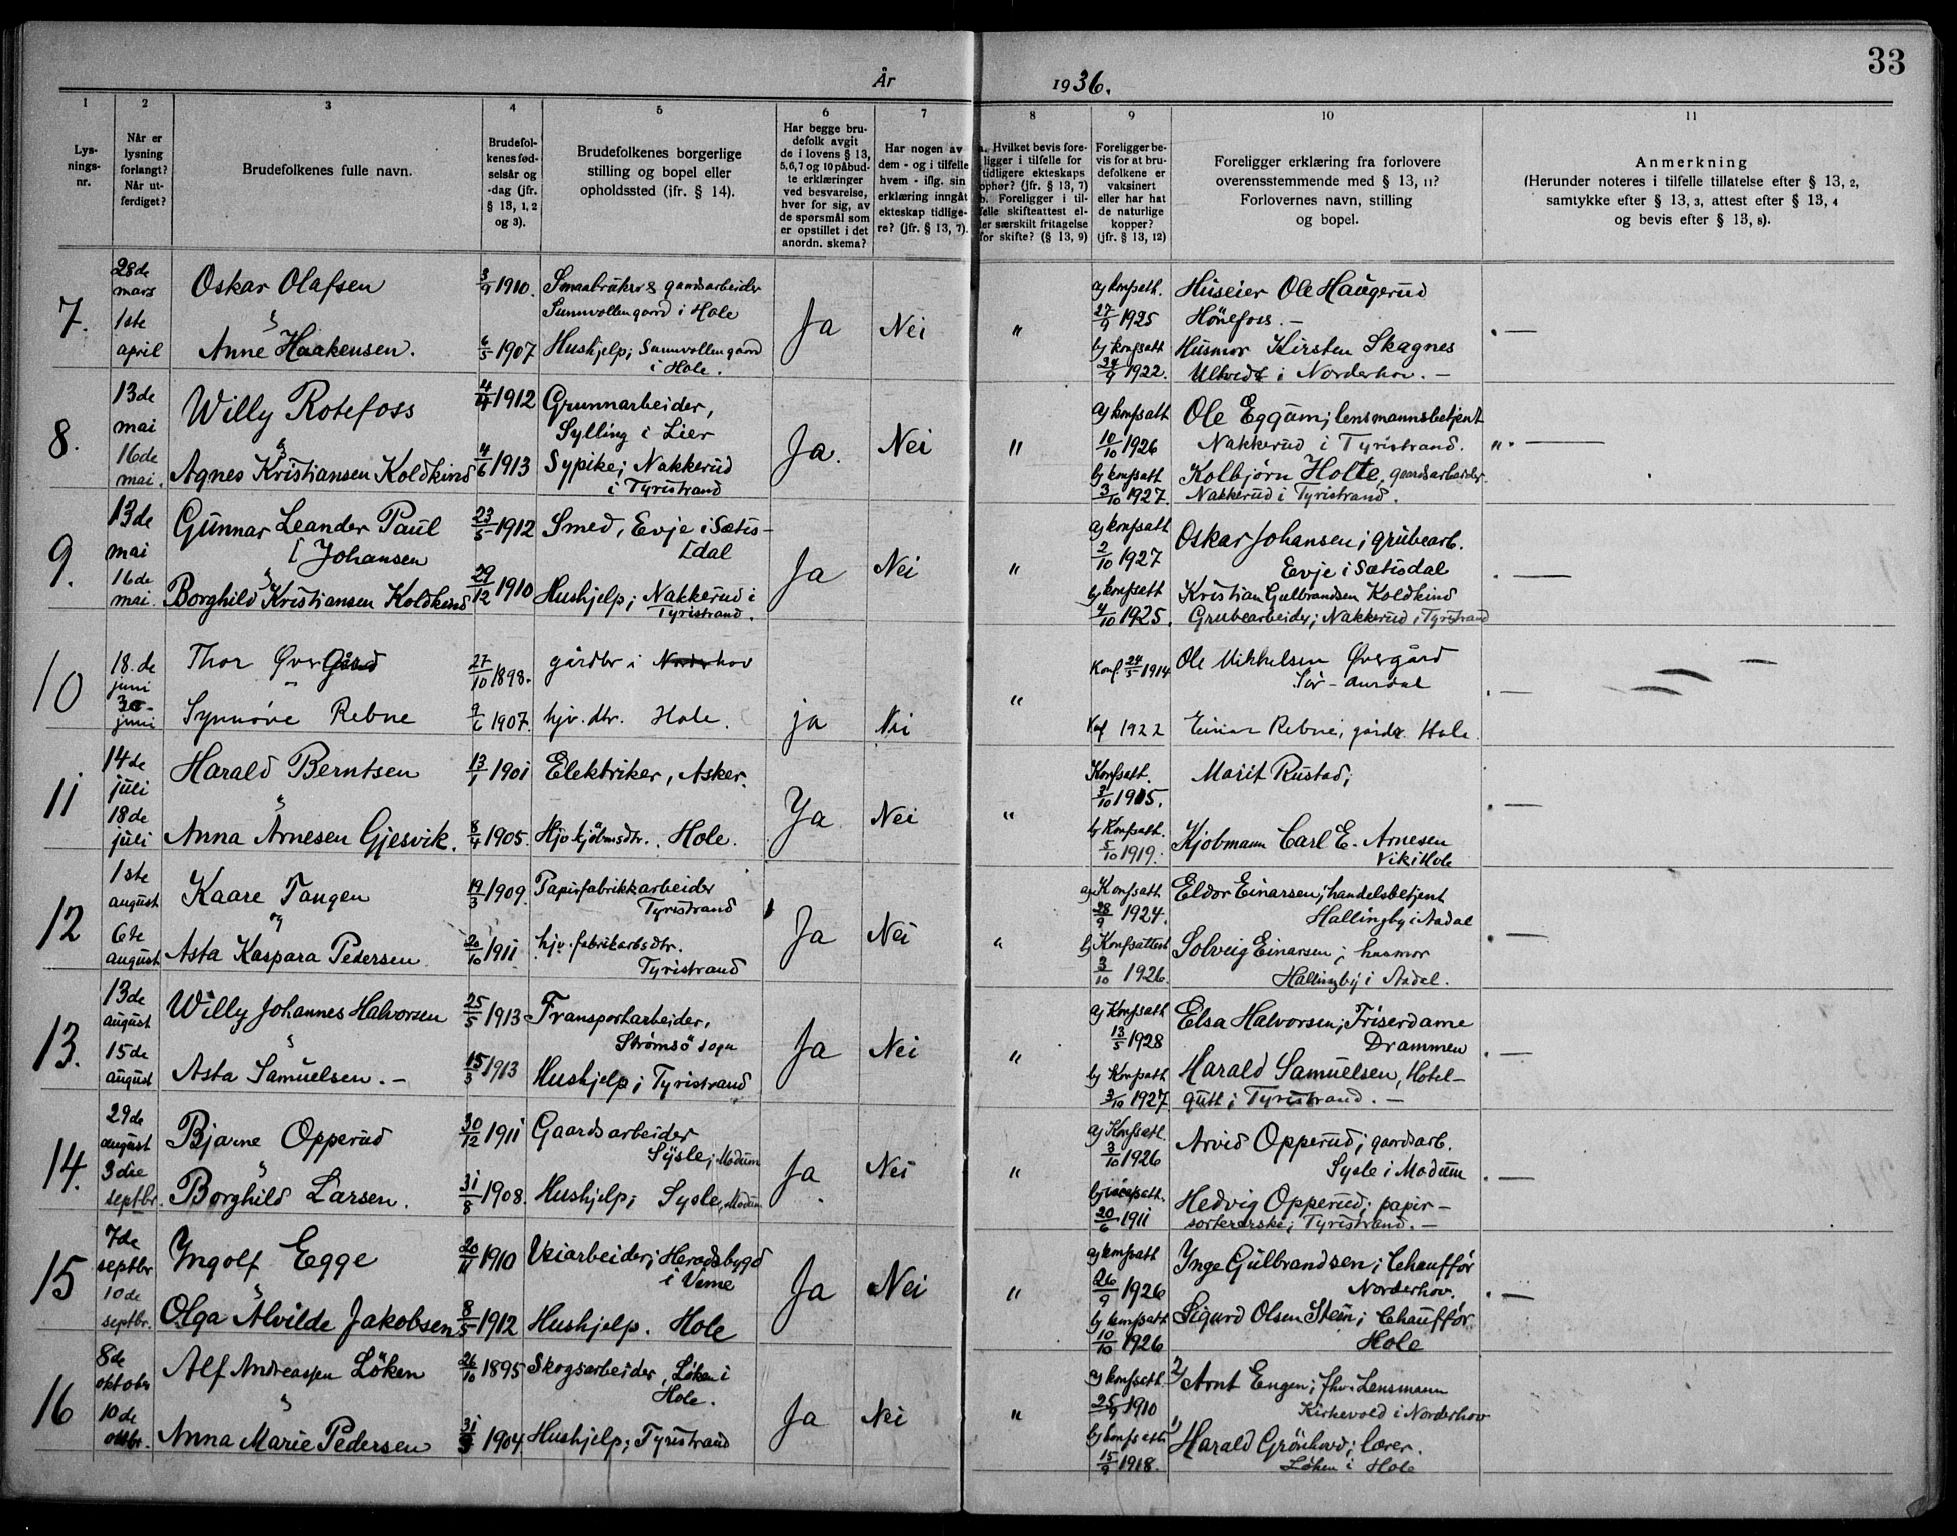 33
År 1936.
1
Lys-
nings-
nr.
2
Når er
lysning
forlangt?
Når ut-
ferdiget?
3
Brudefolkenes fulle navn.
4
Brudefol-
kenes fød-
selsår og
-dag (jfr.
§ 13, 1, 2
og 3).
5
Brudefolkenes borgerlige
stilling og bopel eller
opholdssted (jfr. § 14).
6
Har begge bru-
defolk avgit
de i lovens § 13,
5,6,7 og 10 påbud-
te erklæringer
ved besvarelse,
hver for sig, av
de spørsmål som
er opstillet i det
anordn. skema?
7
Har nogen av
dem - og i tilfelle
hvem - iflg. sin
erklæring inngått
ekteskap tidlige-
re? (jfr. § 13, 7).
8
a. Hvilket bevis fore-
ligger i tilfelle for
tidligere ekteskaps
ophør? (jfr. § 13, 7)
b. Foreligger i til-
felle skifteattest el-
ler særskilt fritagelse
for skifte? (§ 13, 9)
9
Foreligger be-
vis for at bru-
defolkene er
vaksinert
eller har hat
de naturlige
kopper?
(jfr. § 13, 12)
10
Foreligger erklæring fra forlovere
overensstemmende med § 13, 11?
Forlovernes navn, stilling
og bopel.
11
Anmerkning
(Herunder noteres i tilfelle tillatelse efter § 13, 2,
samtykke efter § 13, 3, attest efter § 13, 4
og bevis efter § 13, 8).
7.
28de
mars
1ste
april
Oskar Olafsen
"
Anne Haakensen.
3/9 1910.
6/5 1907
Smaabruker & gaardsarbeider
Sunnvollen gaard i Hole
Hushjelp; Sunnvollen gaard
i Hole.
Ja
Nei
"
a) konfsatt.
27/9 1925
b) konfsatt
24/9 1922.
Huseier Ole Haugerud
Hönefoss. -
Husmor Kirsten Skagnes
Ultvedt i Norderhov. -
. —
8.
13de
mai
16de
mai.
Willy Rotefoss
"
Agnes Kristiansen Koldkind
1912
4/6 1913
Grunnarbeider,
Sylling i Lier
Sypike; Nakkerud
i Tyristrand
Ja.
Nei
"
a) konfsatt
10/10 1926
b) konfsatt
3/10 1927.
Ole Eggum; lensmannsbetjent
Nakkerud i Tyristrand.
Kolbjørn Holte, gaardsarbeider
Nakkerud i Tyristrand.
" . —
9.
13de
mai
16de
mai.
Gunnar Leander Paul
[ Johansen
"
Borghild Kristiansen Koldkind
23/5 1912
29/12 1910
Smed, Evje i Sætis-
[dal
Hushjelp; Nakkerud i
Tyristrand.
Ja
Nei
"
a) konfsatt
2/10 1927
b) konfsatt
4/10 1925.
Oskar Johansen; grubearb.
Evje i Sætisdal
Kristian Gulbrandsen Koldkind
Grubearbeider; Nakkerud i Tyristrand
. —
10
18.de
juni
30-
juni
Thor Øvergård
"
Synnöve Rebne
27/10 1898.
9/6 1907.
gårdbr i Norderhov
hjv. dtr. Hole.
ja
Nei
"
Konf. 24/5 1914
Konf 1922
Ole Mikkelsen Øvergård
Sör-Aurdal
Einar Rebne; gårdbr. Hole.
. —
11
14de
juli
18de
juli
Harald Berntsen
"
Anna Arnesen Gjesvik.
13/1 1901
8/4 1905.
Elektriker, Asker.
Hjv kjöbmsdtr. Hole.
Ja
Nei
"
Konfsatt.
3/10 1915.
b) Konfsatt.
5/10 1919.
Marit Rustad;
Kjobmann Carl E. Arnesen
Vik i Hole
. —
12
1ste
august
6te
august
Kaare Tangen
"
Asta Kaspara Pedersen
19/3 1909.
20/10 1911
Papirfabrikkarbeider
Tyristrand
hjv. fabrikarbsdtr.
Tyristrand
Ja
Nei
"
a) Konfsatt
28/9 1924.
b) Konfsattest
3/10 1926.
Eldor Einarsen; handelsbetjent
Hallingby i Aadal
Solveig Einarsen; husmor
Hallingby i Aadal.
. —
13.
13de
august
15de
august
Willy Johannes Halvorsen
"
Asta Samuelsen. -
25/5 1913
15/3 1913
Transportarbeider,
Strömsö sogn
Hushjelp; Tyristrand
Ja
Nei
"
a) Konfsatt
13/5 1928
b) Konfsatt
3/10 1927
Elsa Halvorsen; Friserdame
Drammen
Harald Samuelsen, Hotel-
gutt i Tyristrand. -
. —
14.
29de
august
3die
septbr.
Bjarne Opperud
"
Borghild Larsen.
30/12 1911
31/8 1908.
Gaardsarbeider
Sysle; Modum
Hushjelp; Sysle, Modum
Ja
Nei
"
a) Konfsatt.
3/10 1926
b)
20/6 1911
Arvid Opperud; gaardsarb.
Sysle i Modum
Hedvig Opperud; papir-
sorterarske; Tyristrand. -
. —
15
7de
septbr
10de
septbr.
Yngolf Egge
"
Olga Alvilde Jakobsen
20/11 1910
8/5 1912
Veiarbeider; Heradsbygd
i Veme
Hushjelp. Hole
Ja
Nei
"
a) konfsatt
26/9 1926
b) konfsatt
10/10 1926
Ynge Gulbrandsen; Chauffør
Norderhov.
Sigurd Olsen Steen; Chauffør
Hole
. —
16
8de
oktober
10de
oktbr.
Alf Andreassen Löken
"
Anna Marie Pedersen
26/10 1895
1904
Skogsarbeider, Löken i
Hole.
Hushjelp; Tyristrand
Ja
Nei
"
a) konfsatt.
25/9 1910
b) konfsatt
15/9 1918.
2) Arnt Engen; fhv. Lensmann
Kirkevold i Norderhov
1) Harald Grönhovd; lærer.
Löken i Hole